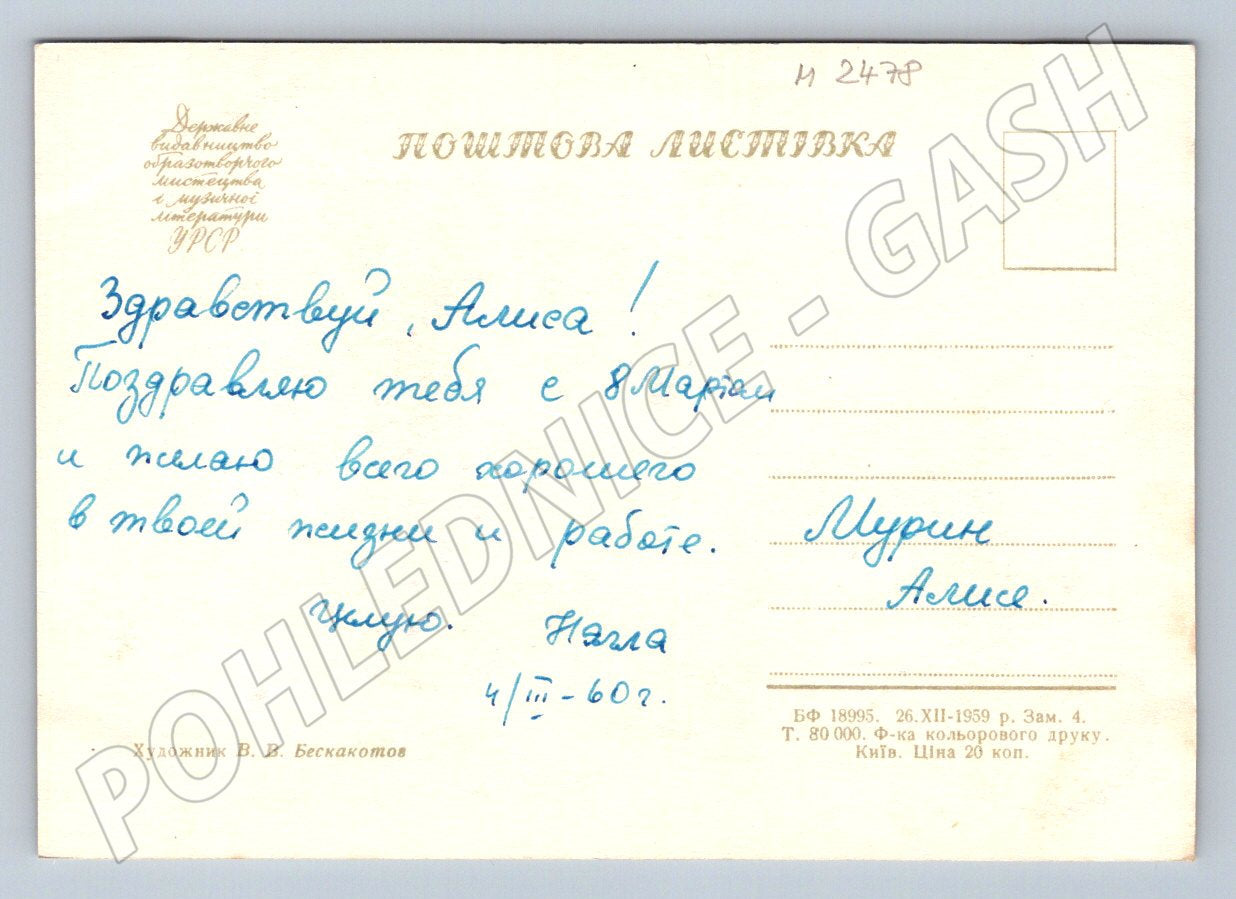 м 2478
Державне
видавництво
образотворчого
мистецтва
і музичної
літератури
УРСР
ПОШТОВА ЛИСТІВКА
Здравствуй, Алиса!
Поздравляю тебя с 8 Мартом
и желаю всего хорошего
в твоей жизни и работе.
Целую.
4/III-60г.
Мурин
Алисе.
Художник В. В. Бескакотов
БФ 18995. 26.XII-1959 р. Зам. 4.
Т. 80 000. Ф-ка кольорового друку.
Київ. Ціна 20 коп.
POHLEDNICE - GASH